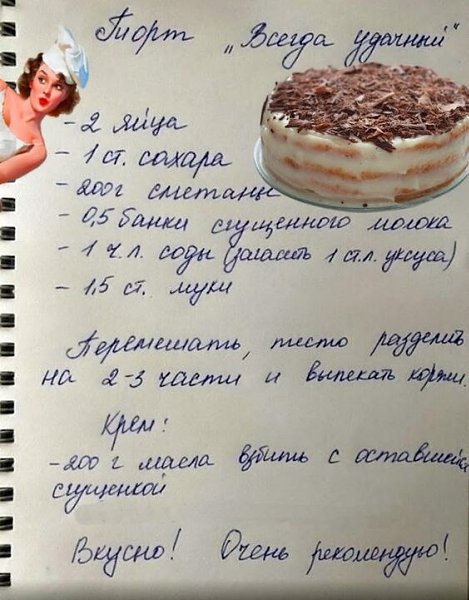 Торт „Всегда удачный"
- 2 яйца
- 1 ст. сахара
- 200г сметаны
- 0,5 банки сгущенного молока
- 1 ч.л. соды (загасить 1 ст.л. уксуса)
- 1,5 ст. муки
Перемешать, тесто разделить
на 2-3 части и выпекать коржи.
Крем:
- 200 г масла взбить с оставшейся
сгущенкой
Вкусно! Очень рекомендую!